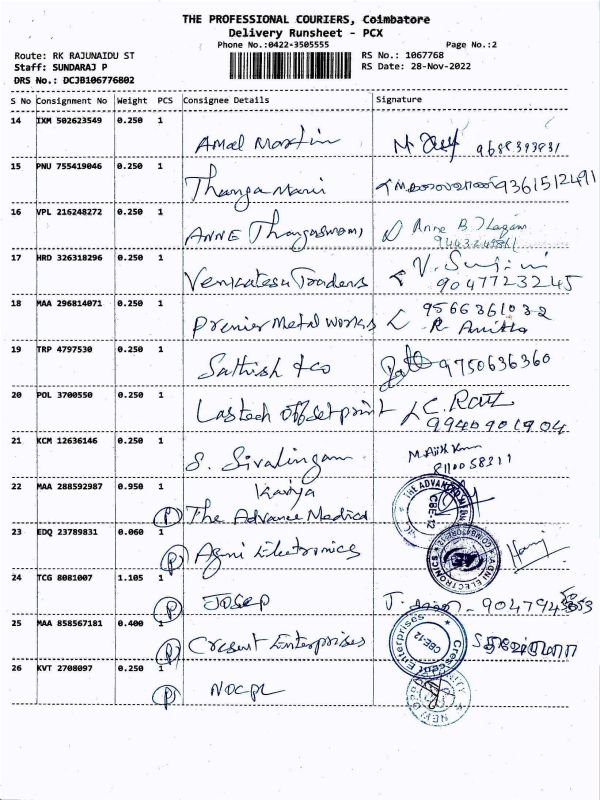 THE PROFESSIONAL COURIERS, Coimbatore
Delivery Runsheet - PCX
Phone No.:0422-3505555 Page No.:2
Route: RK RAJUNAIDU ST RS No.: 1067768
Staff: SUNDARAJ P RS Date: 28-Nov-2022
DRS No.: DCJB106776802
S No Consignment No Weight PCS Consignee Details Signature
14 IXM 502623549 0.250 1
Amal Martin M
15 PNU 755419046 0.250 1
Thanga Mani 9361512491
16 VPL 216248272 0.250 1
ANNE Thangaswami Anne B. Thagam
17 HRD 326318296 0.250 1
Venkatesh Traders V.
9047723245
18 MAA 296814071 0.250 1
Premier Metal Works 9566361032
R. Anitha
19 TRP 4797530 0.250 1
Sathish & co 9750636360
20 POL 3700550 0.250 1
Lastech offset print C.
9940901904
21 KCM 12636146 0.250 1
S. Sivalingam M. Ajith
22 MAA 288592987 0.950 1 Kaviya
P The Advance Medical THE ADVANCED CBE-12
23 EDQ 23789831 0.060 1
P Agni Electronics AGNI ELECTRONICS COIMBATORE-12 AE
24 TCG 8081007 1.105 1
P Josep J.
25 MAA 858567181 0.400 1
P Cresent Enterprises Crescent Enterprises CBE-12
26 KVT 2708097 0.250 1
P NOCPL